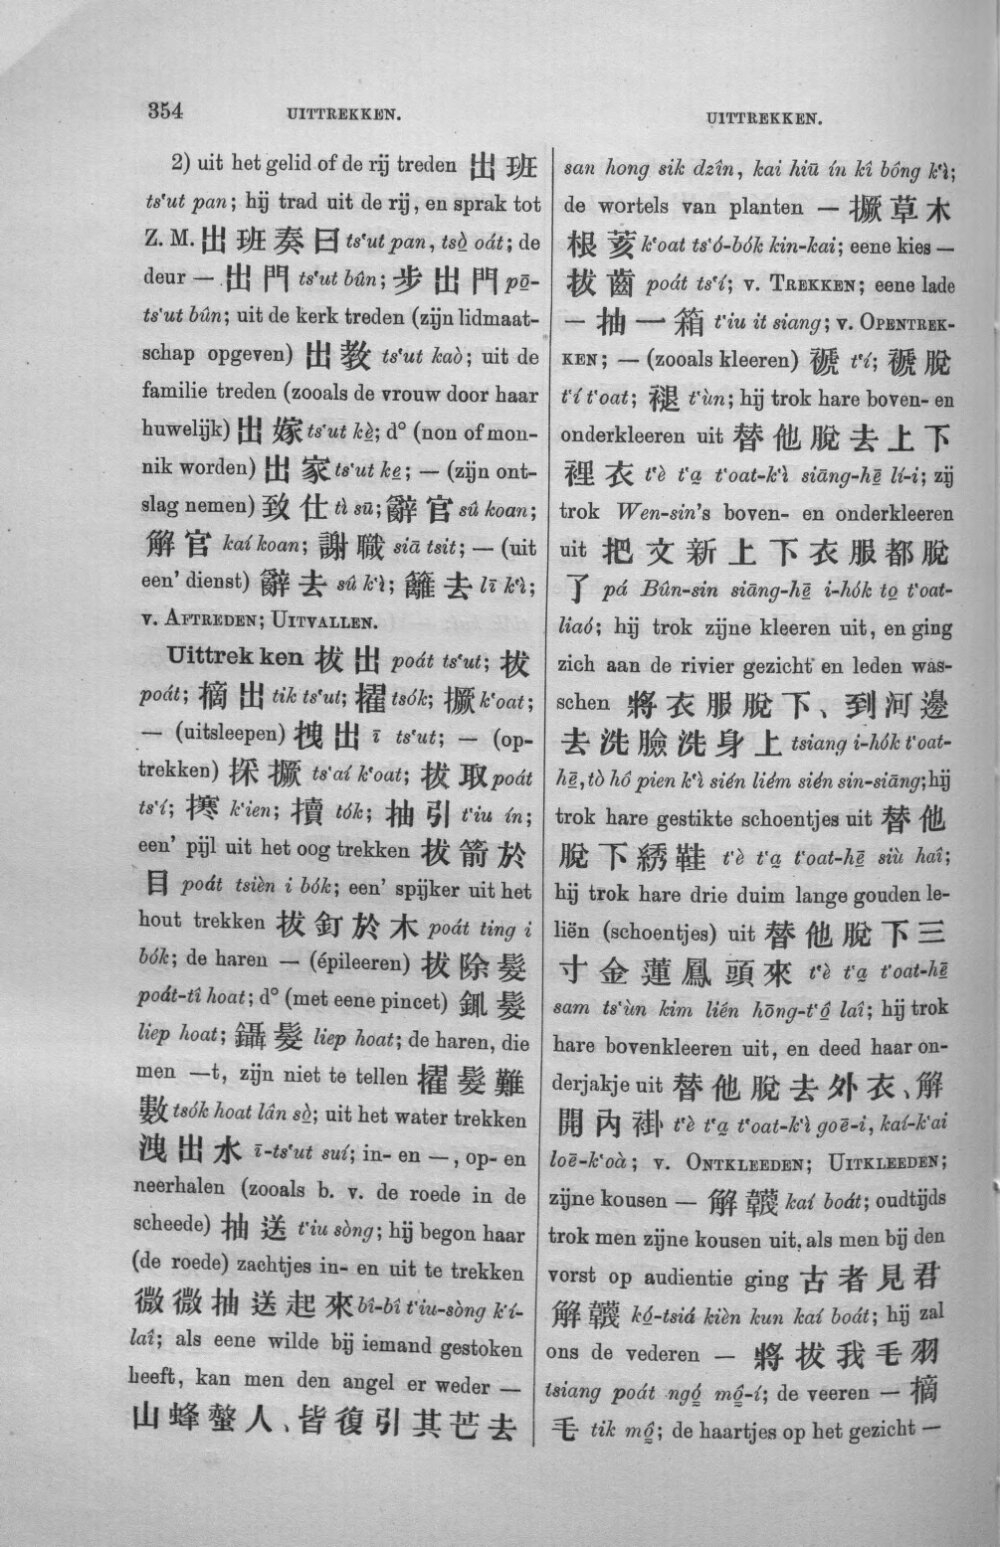 354 UITTREKKEN.
2) uit het gelid of de rij treden 出班
ts‘ut pan; hij trad uit de rij, en sprak tot
Z. M. 出班奏曰 ts‘ut pan, tsò̤ oát; de
deur — 出門 ts‘ut bûn; 步出門 pō̤-
ts‘ut bûn; uit de kerk treden (zijn lidmaat-
schap opgeven) 出教 ts‘ut kaò; uit de
familie treden (zooals de vrouw door haar
huwelijk) 出嫁 ts‘ut kè̤; d° (non of mon-
nik worden) 出家 ts‘ut ke̤; — (zijn ont-
slag nemen) 致仕 tì sū; 辭官 sû koan;
解官 kaí koan; 謝職 siā tsit; — (uit
een’ dienst) 辭去 sû k‘ì; 離去 lī k‘ì;
v. AFTREDEN; UITVALLEN.
Uittrekken 拔出 poát ts‘ut; 拔
poát; 摘出 tik ts‘ut; 擢 tsók; 撅 k‘oat;
— (uitsleepen) 拽出 ī ts‘ut; — (op-
trekken) 採撅 ts‘aí k‘oat; 拔取 poát
ts‘í; 攓 k‘ien; 擩 tók; 抽引 t‘iu ín;
een’ pijl uit het oog trekken 拔箭於
目 poát tsièn i bók; een’ spijker uit het
hout trekken 拔釘於木 poát ting i
bók; de haren — (épileeren) 拔除髮
poát-tî hoat; d° (met eene pincet) 鑈髮
liep hoat; 鑷髮 liep hoat; de haren, die
men —t, zijn niet te tellen 擢髮難
數 tsók hoat lân sò̤; uit het water trekken
洩出水 ī-ts‘ut suí; in- en —, op- en
neerhalen (zooals b. v. de roede in de
scheede) 抽送 t‘iu sòng; hij begon haar
(de roede) zachtjes in- en uit te trekken
微微抽送起來 bî-bî t‘iu-sòng k‘í-
laî; als eene wilde bij iemand gestoken
heeft, kan men den angel er weder —
山蜂螫人、皆復引其芒去
UITTREKKEN.
san hong sik dzîn, kai hiū ín kî bông k‘ì;
de wortels van planten — 撅草木
根荄 k‘oat ts‘ó-bók kin-kai; eene kies —
拔齒 poát ts‘í; v. TREKKEN; eene lade
— 抽一箱 t‘iu it siang; v. OPENTREK-
KEN; — (zooals kleeren) 褫 t‘í; 褫脫
t‘í t‘oat; 褪 t‘ùn; hij trok hare boven- en
onderkleeren uit 替他脫去上下
裡衣 t‘è t‘a̤ t‘oat-k‘ì siāng-hē̤ lí-i; zij
trok Wen-sin’s boven- en onderkleeren
uit 把文新上下衣服都脫
了 pá Bûn-sin siāng-hē̤ i-hók to̤ t‘oat-
liaó; hij trok zijne kleeren uit, en ging
zich aan de rivier gezicht en leden was-
schen 將衣服脫下、到河邊
去洗臉洗身上 tsiang i-hók t‘oat-
hē̤, tò hô pien k‘ì sién liém sién sin-siāng; hij
trok hare gestikte schoentjes uit 替他
脫下綉鞋 t‘è t‘a̤ t‘oat-hē̤ siù haî;
hij trok hare drie duim lange gouden le-
liën (schoentjes) uit 替他脫下三
寸金蓮鳳頭來 t‘è t‘a̤ t‘oat-hē̤
sam ts‘ùn kim lién hōng-t‘ô̤ laî; hij trok
hare bovenkleeren uit, en deed haar on-
derjakje uit 替他脫去外衣、解
開內褂 t‘è t‘a̤ t‘oat-k‘ì goē-i, kaí-k‘ai
loē-k‘oà; v. ONTKLEEDEN; UITKLEEDEN;
zijne kousen — 解韈 kaí boát; oudtijds
trok men zijne kousen uit, als men bij den
vorst op audientie ging 古者見君
解韈 kó̤-tsiá kièn kun kaí boát; hij zal
ons de vederen — 將拔我毛羽
tsiang poát ngó̤ mô̤-í; de veeren — 摘
毛 tik mô̤; de haartjes op het gezicht —